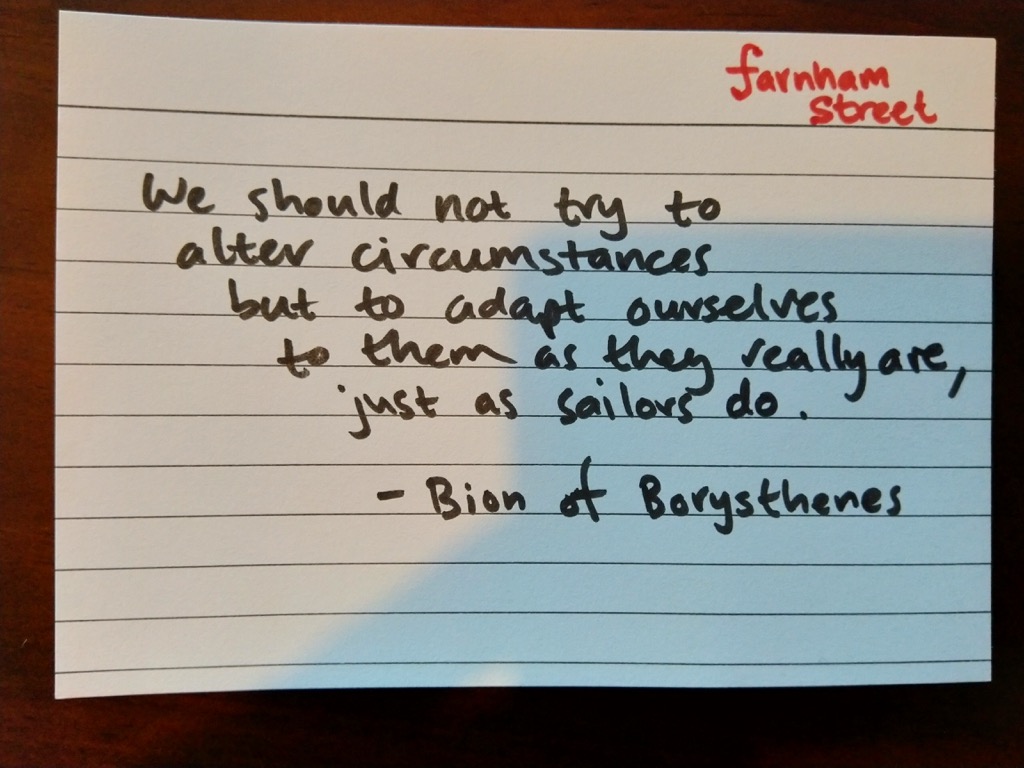 farnham
street
We should not try to
alter circumstances
but to adapt ourselves
to them as they really are,
just as sailors do.
- Bion of Borysthenes